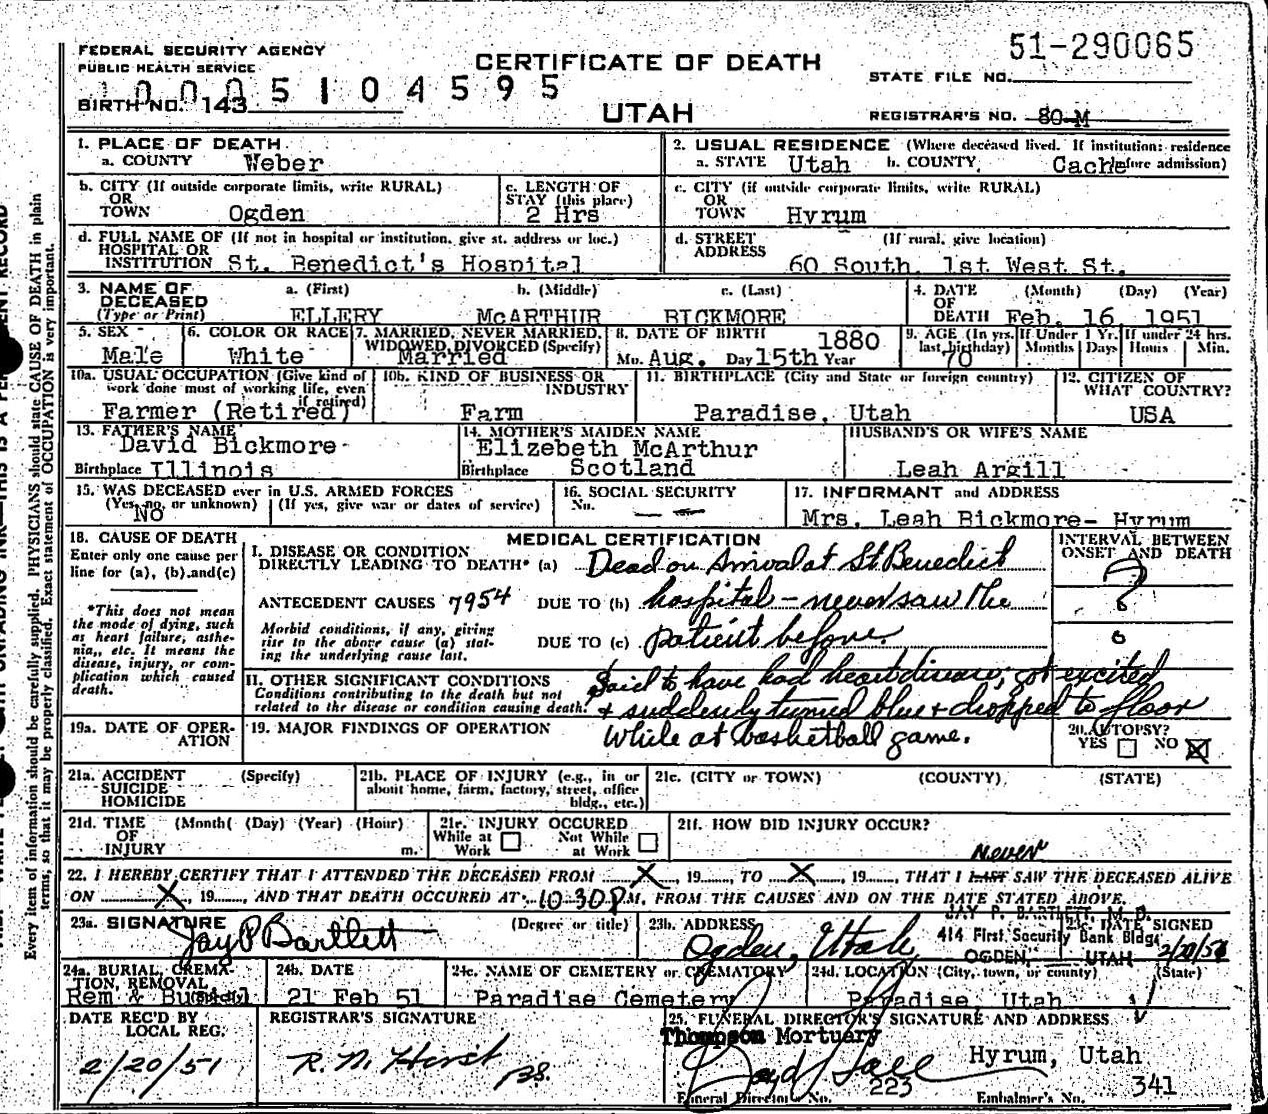 51-290065
FEDERAL SECURITY AGENCY
PUBLIC HEALTH SERVICE
CERTIFICATE OF DEATH
STATE FILE NO.
1 0 0 0 5 1 0 4 5 9 5
BIRTH NO. 143
UTAH
REGISTRAR'S NO. 80-M
1. PLACE OF DEATH
a. COUNTY Weber
2. USUAL RESIDENCE (Where deceased lived. If institution: residence before admission)
a. STATE Utah b. COUNTY Cache
b. CITY (If outside corporate limits, write RURAL)
OR
TOWN Ogden
c. LENGTH OF
STAY (this place)
2 Hrs
c. CITY (if outside corporate limits, write RURAL)
OR
TOWN Hyrum
d. FULL NAME OF (If not in hospital or institution, give st. address or loc.)
HOSPITAL OR
INSTITUTION St. Benedict's Hospital
d. STREET (If rural, give location)
ADDRESS
60 South, 1st West St.
3. NAME OF
DECEASED
(Type or Print)
a. (First) b. (Middle) c. (Last)
ELLERY McARTHUR BICKMORE
4. DATE (Month) (Day) (Year)
OF
DEATH Feb. 16, 1951
5. SEX
Male
6. COLOR OR RACE
White
7. MARRIED, NEVER MARRIED,
WIDOWED, DIVORCED (Specify)
Married
8. DATE OF BIRTH 1880
Mo. Aug. Day 15th Year
9. AGE (In yrs. last birthday)
70
If Under 1 Yr.
Months Days
If under 24 hrs.
Hours Min.
10a. USUAL OCCUPATION (Give kind of
work done most of working life, even
if retired)
Farmer (Retired)
10b. KIND OF BUSINESS OR
INDUSTRY
Farm
11. BIRTHPLACE (City and State or foreign country)
Paradise, Utah
12. CITIZEN OF
WHAT COUNTRY?
USA
13. FATHER'S NAME
David Bickmore
Birthplace Illinois
14. MOTHER'S MAIDEN NAME
Elizebeth McArthur
Birthplace Scotland
HUSBAND'S OR WIFE'S NAME
Leah Argill
15. WAS DECEASED ever in U.S. ARMED FORCES
(Yes, no, or unknown) (If yes, give war or dates of service)
NO
16. SOCIAL SECURITY
No.
17. INFORMANT and ADDRESS
Mrs. Leah Bickmore- Hyrum
18. CAUSE OF DEATH
Enter only one cause per
line for (a), (b).and(c)
*This does not mean
the mode of dying, such
as heart failure, asthe-
nia,, etc. It means the
disease, injury, or com-
plication which caused
death.
MEDICAL CERTIFICATION
INTERVAL BETWEEN
ONSET AND DEATH
I. DISEASE OR CONDITION
DIRECTLY LEADING TO DEATH* (a) Dead on Arrival at St Benedict
ANTECEDENT CAUSES 7954 DUE TO (b) hospital - never saw the
Morbid conditions, if any, giving
rise to the above cause (a) stat-
ing the underlying cause last.
DUE TO (c) patient before.
II. OTHER SIGNIFICANT CONDITIONS
Conditions contributing to the death but not
related to the disease or condition causing death.
Said to have had heart disease; got excited
+ suddenly turned blue + dropped to floor
while at basketball game.
19a. DATE OF OPER-
ATION
19. MAJOR FINDINGS OF OPERATION
20. AUTOPSY?
YES NO X
21a. ACCIDENT (Specify)
SUICIDE
HOMICIDE
21b. PLACE OF INJURY (e.g., in or
about home, farm, factory, street, office
bldg., etc.)
21c. (CITY or TOWN) (COUNTY) (STATE)
21d. TIME (Month( (Day) (Year) (Hour)
OF
INJURY m.
21e. INJURY OCCURED
While at Work Not While at Work
21f. HOW DID INJURY OCCUR?
never
22. I HEREBY CERTIFY THAT I ATTENDED THE DECEASED FROM X, 19, TO X, 19, THAT I LAST SAW THE DECEASED ALIVE
ON X, 19, AND THAT DEATH OCCURED AT 10:30 P M, FROM THE CAUSES AND ON THE DATE STATED ABOVE.
23a. SIGNATURE (Degree or title)
Jay P Bartlett
23b. ADDRESS
Ogden, Utah
JAY P. BARTLETT, M. D.
414 First Security Bank Bldg.
OGDEN, UTAH
23c. DATE SIGNED
2/20/51
24a. BURIAL, CREMA-
TION, REMOVAL
Rem & Burial
24b. DATE
21 Feb 51
24c. NAME OF CEMETERY or CREMATORY
Paradise Cemetery
24d. LOCATION (City, town, or county) (State)
Paradise, Utah
DATE REC'D BY
LOCAL REG.
2/20/51
REGISTRAR'S SIGNATURE
R. N. Hirst
25. FUNERAL DIRECTOR'S SIGNATURE AND ADDRESS
Thompson Mortuary
Hyrum, Utah
Funeral Director No. 223
Embalmer's No. 341
Every item of information should be carefully supplied. PHYSICIANS should state CAUSE OF DEATH in plain
terms, so that it may be properly classified. Exact statement of OCCUPATION is very important.